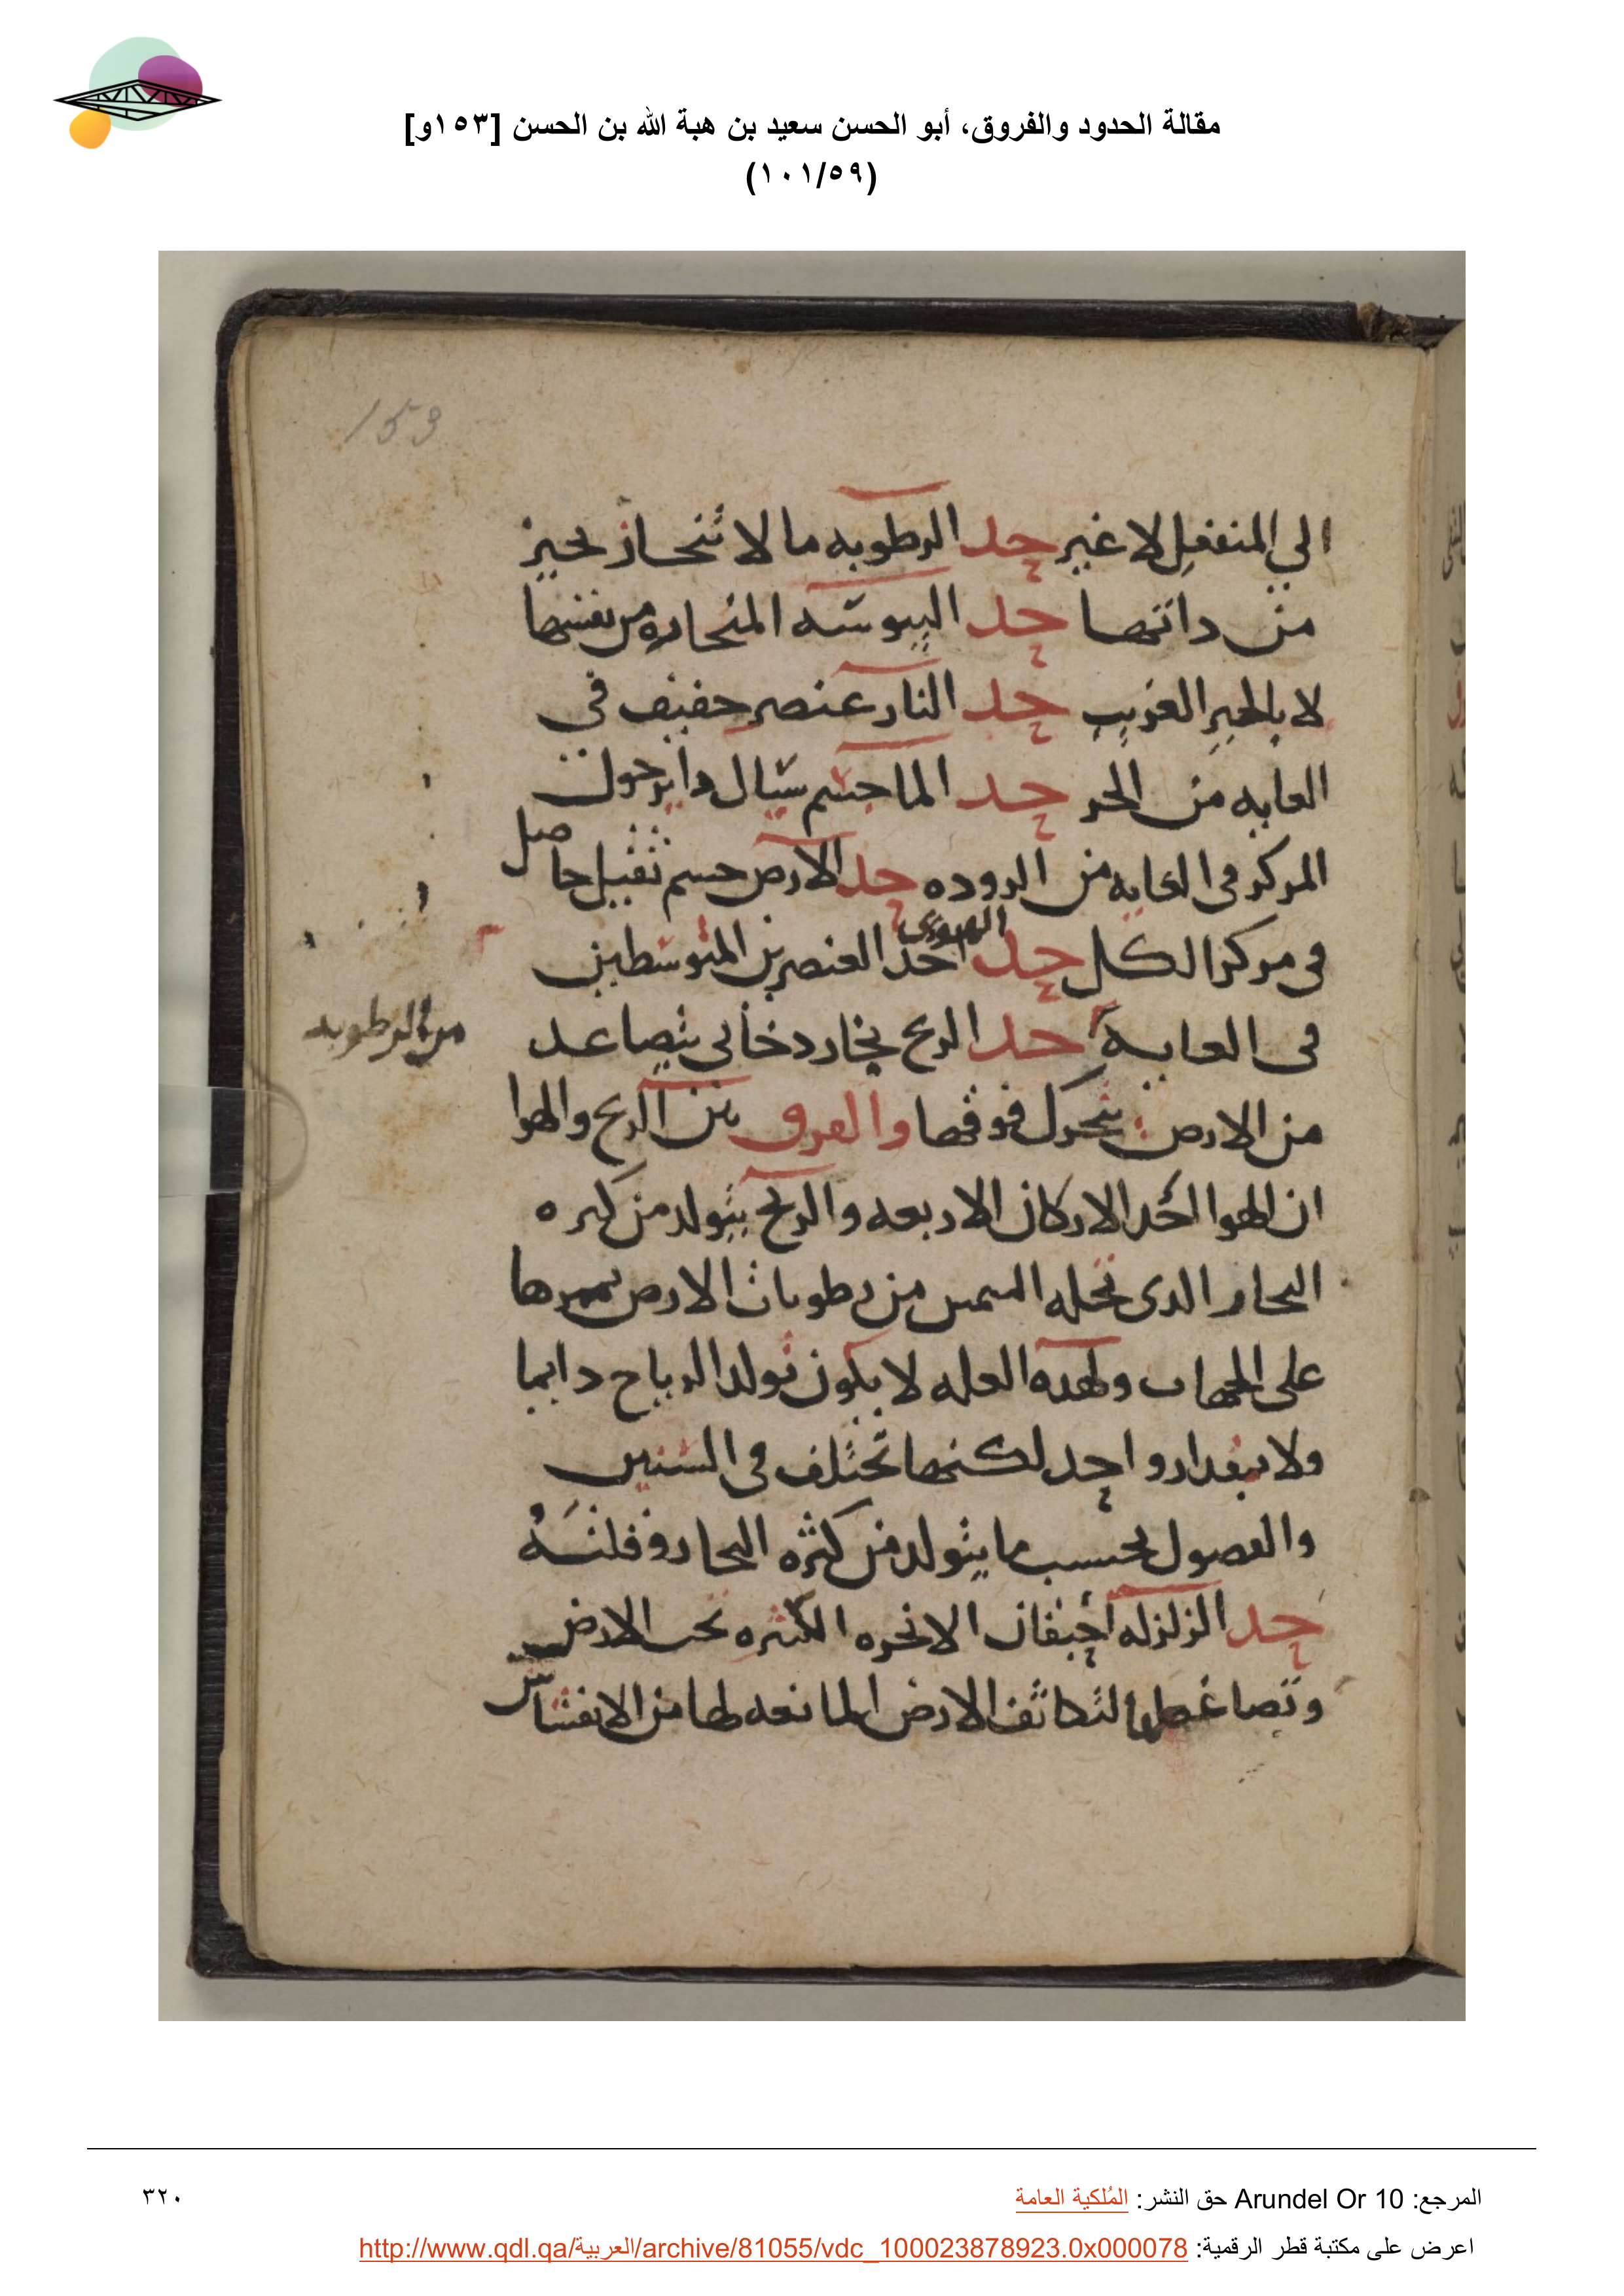 مقالة الحدود والفروق، أبو الحسن سعيد بن هبة الله بن الحسن [١٥٣و]
(١٠١/٥٩)
153
الي المنفعل لا غير حد الرطوبه ما لا تنحاز بحيز
من داتها حد اليبوسه المنحازه من نفسها
لا بالحيز الغريب حد النار عنصر خفيف في
الغايه من الحر حد الما جسم سيال داير حول
المركز في الغايه من البروده حد الارض جسم ثقيل حاصل
في مركز الكل حد الهوى احد العنصرين المتوسطين
في الغاية من الرطوبه حد الريح بخار دخاني يتصاعد
من الارض يتحرك فوقها والفرق بين الريح والهوا
ان الهوا احد الاركان الاربعه والريح يتولد من كثره
البخار الدى تحله الشمس من رطوبات الارض
على الجهات ولهده العله لا يكون تولد الرياح دايما
ولا بمقدار واحد لكنها تختلف في السنين
والفصول بحسب ما يتولد من كثره البخار وقلته
حد الزلزله احتقان الابخره الكثيره تحت الارض
وتضاغطها لتكاثف الارض المانعه لها من الانفشاش
المرجع: Arundel Or 10 حق النشر: المُلكية العامة
٣٢٠
اعرض على مكتبة قطر الرقمية: http://www.qdl.qa/العربية/archive/81055/vdc_100023878923.0x000078